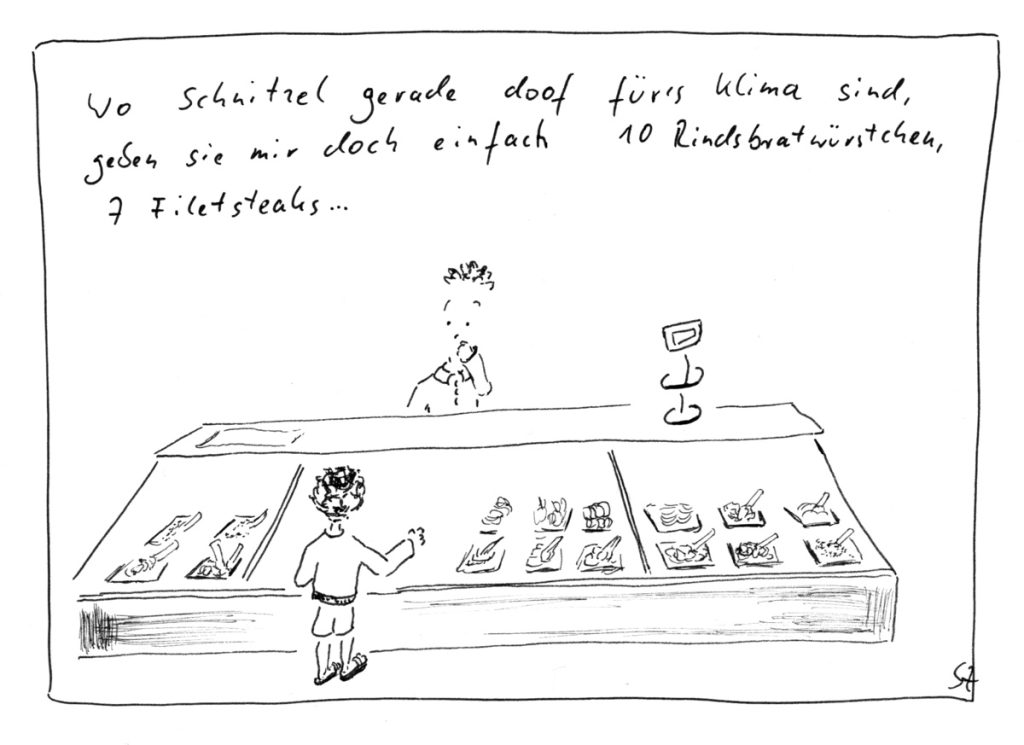 Wo Schnitzel gerade doof für's Klima sind,
geben sie mir doch einfach 10 Rindsbratwürstchen,
7 Filetsteaks...
SZ